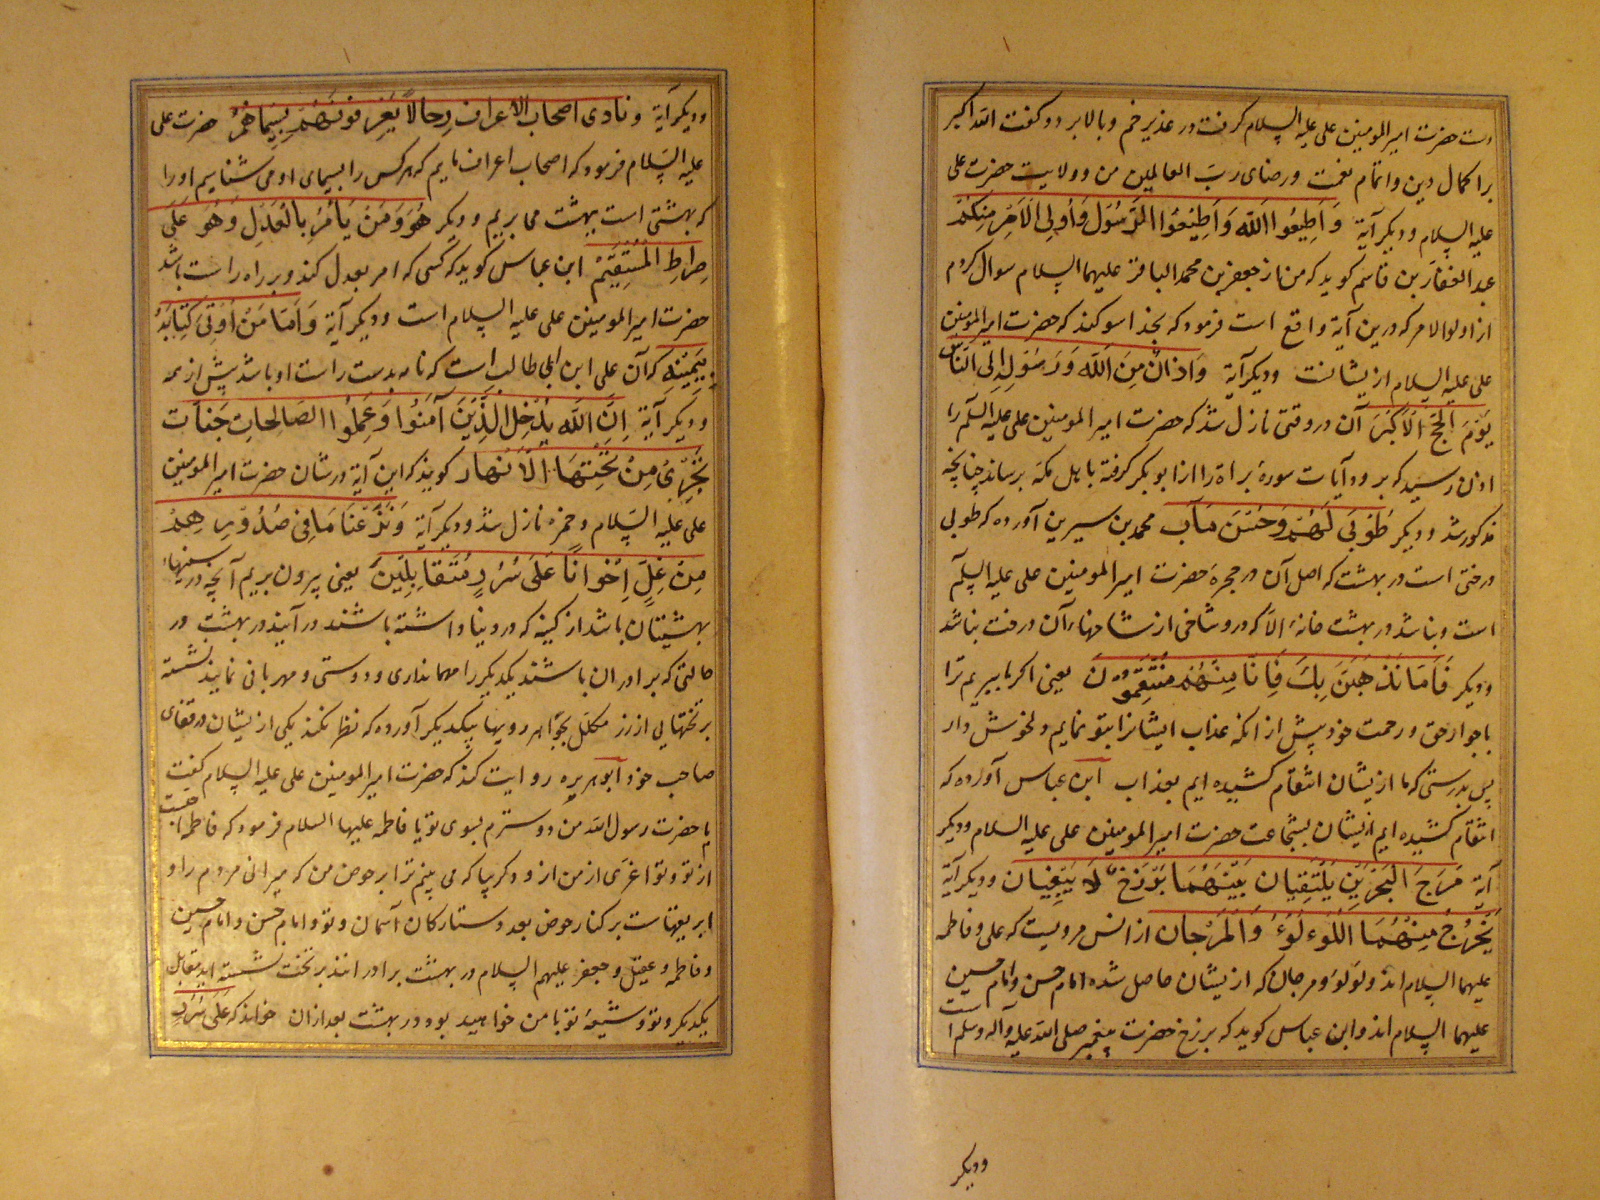 دست حضرت امیرالمومنین علی علیه السلام گرفت در غدیر خم و بالا برد و گفت الله اکبر
بر اکمال دین و اتمام نعمت و رضای رب العالمین من و ولایت حضرت علی
علیه السلام و دیکر آیة وَاَطِیعُوا اللّه وَاَطِیعُوا الرَّسُولَ وَاُولِی الاَمرِ مِنکُم
عبد الغفار بن قاسم کوید که من از جعفر بن محمد الباقر علیهما السلام سوال کردم
از اولوالامر که درین آیة واقع است فرمود که بخدا سوکند که حضرت امیرالمومنین
علی علیه السلام از یشانست و دیکر آیة وَاَذانٌ مِنَ اللّه وَرَسُولِهِ اِلی النّاسِ
یَومَ الحَجِّ الاَکبَرِ آن در وقتی نازل شد که حضرت امیرالمومنین علی علیه السلم را
اذن رسید که برود و آیات سورهٔ براة را از ابوبکر کرفته باهل مکه برساند چنانچه
مذکور شد و دیکر طُوبَی لَهُم وَحُسنَ مَآب محمد بن سیرین آورده که طوبی
درختی است در بهشت که اصل آن در حجرهٔ حضرت امیرالمومنین علی علیه السلم
است و نباشد در بهشت خانهٔ الا که درو شاخی از شاخهاء آن درخت نباشد
و دیکر فَاَمّا نَذهَبَنَّ بِكَ فَاِنّا مِنهُم مُنتَقِمُون یعنی اکر ما ببریم ترا
با جوار حق و رحمت خود پیش از انکه عذاب ایشانرا بتو نمایم دلخوش دار
پس بدرستی که ما از یشان انتقام کشیده ایم بعذاب ابن عباس آورده که
انتقام کشیده ایم از یشان بشجاعت حضرت امیرالمومنین علی علیه السلام و دیکر
آیة مَرَجَ البَحرَینِ یَلتَقِیان بَینَهُما بَرزَخٌ لا یَبغِیان و دیکر آیة
یَخرُجُ مِنهُمَا اللُّؤلُؤُ وَالمَرجان از انس مرویست که علی و فاطمه
علیهما السلام اند و لولو و مرجان که از یشان حاصل شده امام حسن و امام حسین
علیهما السلام اند و ابن عباس کوید که برزخ حضرت پیغمبر صلی الله علیه و آله وسلم است
و دیکر
و دیکر آیة وَنادی اَصحابُ الاَعرافِ رِجالاً یَعرِفُونَهُم بِسِیماهُم حضرت علی
علیه السلام فرمود که اصحاب اعراف مایم که هر کس را بسیمای او می شناسیم او را
که بهشتی است ببهشت می بریم و دیکر هُوَ وَمَن یَأمُرُ بِالعَدلِ وَهُوَ عَلَی
صِراطٍ المُستَقِیم ابن عباس کوید که کسی که امر بعدل کند و بر راه راست باشد
حضرت امیرالمومنین علی علیه السلام است و دیکر آیة وَاَمّا مَن اُوتِیَ کِتابَهُ
بِیَمِینِه که آن علی ابن ابی طالب است که نامه بدست راست او باشد پیش از همه
و دیکر آیة اِنَّ اللّه یُدخِلُ الَّذِینَ آمَنُوا وَعَمِلُوا الصّالِحاتِ جَنّات
تَجرِی مِن تَحتِهَا الاَنهار کویند که این آیة در شان حضرت امیرالمومنین
علی علیه السلام و حمزه نازل شد و دیکر آیة وَنَزَعنا ما فِی صُدُورِهِم
مِن غِلٍّ اِخواناً عَلَی سُرُرٍ مُتَقابِلِین یعنی بیرون بریم آنچه در سینهاء
بهشتیان باشد از کینه که در دنیا داشته باشند در آیند در بهشت در
حالتی که برادران باشند یکدیکر را مهمانداری و دوستی و مهربانی نمایند نشسته
بر تختهایی از زر مکلل بجواهر رویها بیکدیکر آورده که نظر نکنند یکی از یشان در قفای
صاحب خود ابو هریره روایت کند که حضرت امیرالمومنین علی علیه السلام کفت
با حضرت رسول الله من دوسترم بسوی تو یا فاطمه علیها السلام فرمود که فاطمه احب است
از تو و تو اعزی از من از و و کویا که می بینم ترا بر حوض من که میرانی مردم را و
ابریقهاست بر کنار حوض بعدد ستارکان آسمان و تو و امام حسن و امام حسین
و فاطمه و عقیل و جعفر علیهم السلام در بهشت برادرانند بر تخت نشسته اید مقابل
یکدیکر و تو و شیعهٔ تو با من خواهید بود در بهشت بعد از ان خواند که عَلَی سُرُرٍ